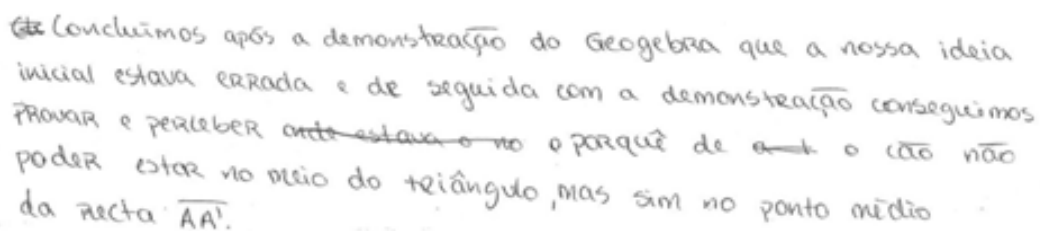 Concluímos após a demonstração do Geogebra que a nossa ideia
inicial estava errada e de seguida com a demonstração conseguimos
provar e perceber onde estava o no o porquê de o cão não
poder estar no meio do triângulo, mas sim no ponto médio
da recta AA'.